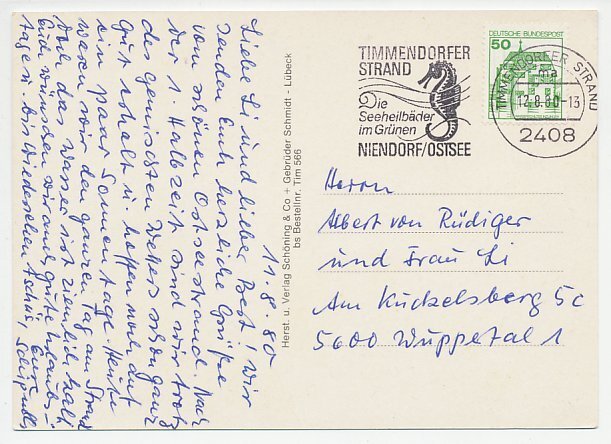 11.8.80
Liebe Li und lieber Bert! Wir
senden Euch herzliche Grüße
vom schönen Ostseestrand. Nach
der 1. Halbzeit sind wir trotz
des gemischten Wetters schon ganz
gut erholt u. hoffen noch auf
ein paar Sonnentage. Heute
waren wir den ganzen Tag am Strand
doch das Wasser ist ziemlich kalt
Euch wünschen wir auch gute Urlaubs-
tage u. bis Wiedersehen tschüs, Eure
Herst. u. Verlag Schöning & Co + Gebrüder Schmidt - Lübeck
bs Bestellnr. Tim 566
TIMMENDORFER
STRAND
Die
Seeheilbäder
im Grünen
NIENDORF/OSTSEE
DEUTSCHE BUNDESPOST
50
TIMMENDORFER STRAND
ma
12.8.80-13
2408
Herrn
Albert von Rüdiger
und Frau Li
Am Kuckelsberg 5c
5600 Wuppetal 1